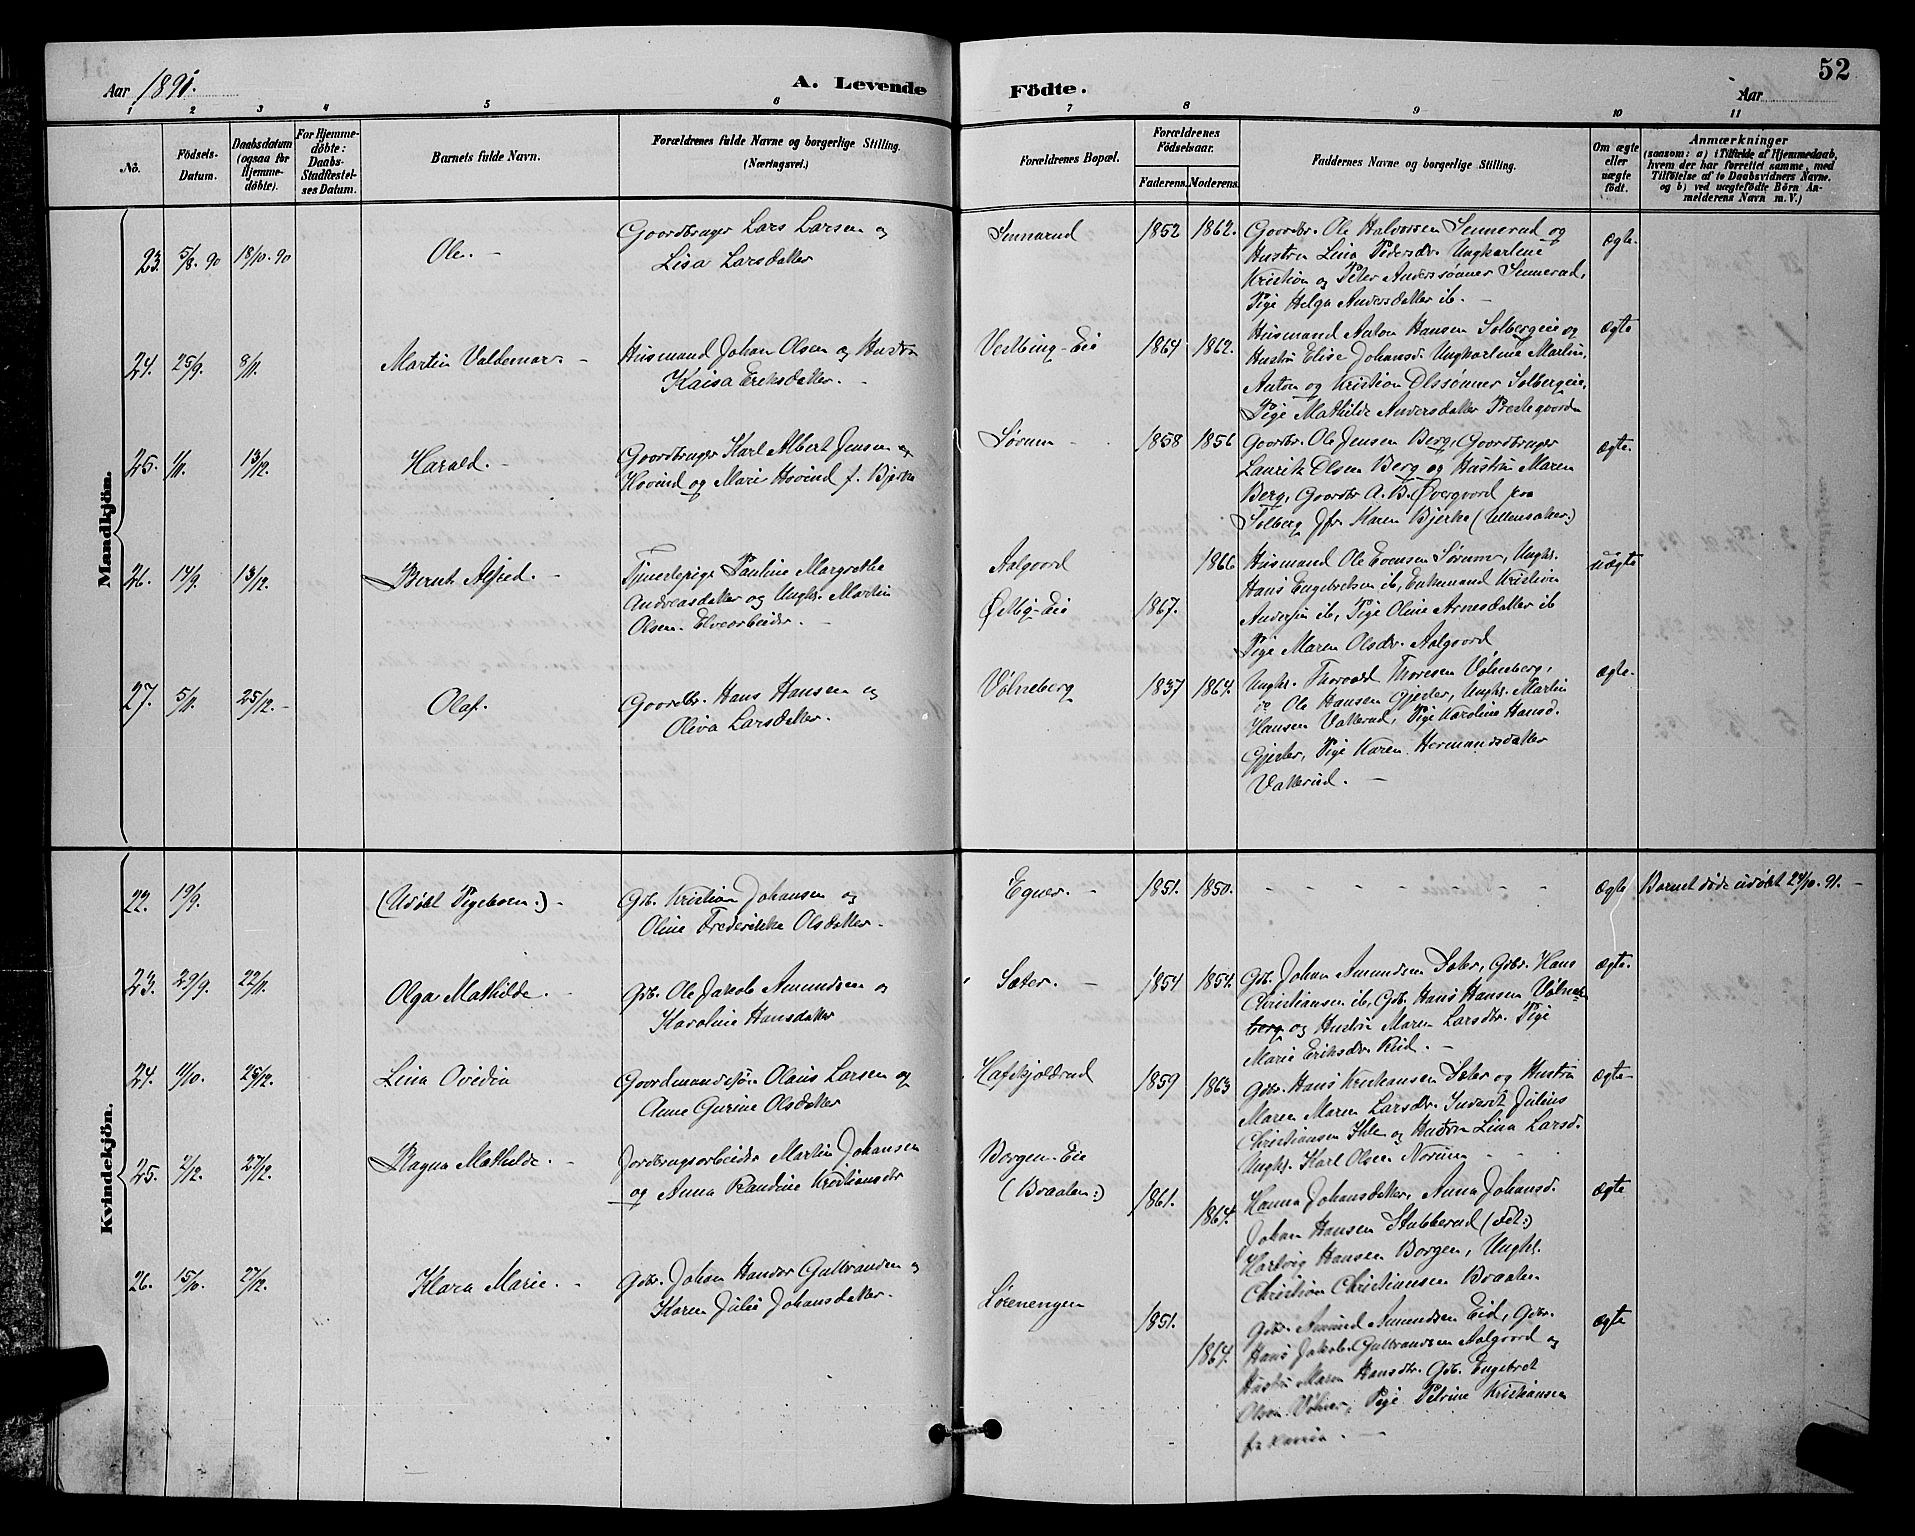 Aar 1891.
A. Levende
Födte.
Aar
52
1 2 3 4 5 6 7 8 9 10 11
No.
Födsels-
Datum.
Daabsdatum
(ogsaa for
Hjemme-
döbte).
For Hjemme-
döbte:
Daabs-
Stadfæstel-
ses Datum.
Barnets fulde Navn.
Forældrenes fulde Navne og borgerlige Stilling.
(Næringsvei.)
Forældrenes Bopæl.
Forældrenes
Födselsaar.
Faderens. Moderens.
Faddernes Navne og borgerlige Stilling.
Om ægte
eller
uægte
födt.
Anmærkninger
(saasom: a) i Tilfælde af Hjemmedaab,
hvem der har forrettet samme, med
Tilföielse af to Daabsvidners Navne,
og b) ved uægtefödte Börn An-
melderens Navn m. V.)
Mandkjön.
23. 5/8. 90 18/10. 90 Ole. -
Goordbruger Lars Larsen og
Lisa Larsdatter
Sennerud 1852 1862.
Goordbr. Ole Halvorsen Sennerud og
Hustru Lina Pedersdr. Ungkarlene
Kristian og Peter Anderssønner Sennerud,
Pige Helga Andersdatter ib. -
ægte.
24. 25/9. 8/11. Martin Valdemar. -
Husmand Johan Olsen og Hustru
Kaisa Eriksdatter. -
Vestbing-Eie 1864 1862.
Husmand Anton Hansen Solbergeie og
Hustru Elise Johansd. Ungkarlene Martin,
Anton og Kristian Olssønner Solbergeie,
Pige Mathilde Andersdatter Prestegoorden
ægte
25. 1/11. 13/12. Harald. -
Goordbruger Karl Albert Jensen
Hovind og Mari Hovind f. Bjerke
Sørum - 1858 1856
Goordbr. Ole Jensen Berg, Goordbruger
Laurits Olsen Berg og Hustru Maren
Berg, Goordbr A. B. Øvergoord paa
Solberg Jfr. Karen Bjerke (Ullensaker:)
ægte.
26. 14/9. 13/12. Bernt Alfred. -
Tjenestepige Pauline Margrethe
Andreasdatter og Ungk. Martin
Olsen. Elvearbeider. -
Aalgoord 1866
Østby-Eie 1867.
Husmand Ole Evensen Sørum, Ungk.
Hans Engebretsen ib, Enkemand Kristian
Andersen ib, Pige Oline Arnesdatter ib
Pige Maren Olsdr. Aalgoord
uægte
27. 5/11. 25/12. - Olaf.
Goordbr. Hans Hansen og
Oliva Larsdatter.
Volneberg 1837 1864.
Ungk. Thorvald Thoresen Volneberg,
Ole Hansen Gjester, Ungk. Martin
Hansen Vakerud, Pige Karoline Hansd.
Gjester, Pige Karen Hermandsdatter
Vakerud. -
ægte.
Kvindekjön.
22. 19/9. (Udøbt Pigebarn:) -
Gdb. Kristian Johansen og
Oline Frederikke Olsdatter -
Egner. - 1851. 1850. - - - - - - -
ægte
Barnet døde udøbt 24/10. 91. -
23. 29/9. 22/11. Olga Mathilde. -
Gdb. Ole Jakob Amundsen og
Karoline Hansdatter
Sæter. - 1854 1854.
Gdb. Johan Amundsen Sæter, Gdbr. Hans
Christiansen ib, Gdb. Hans Hansen Volne-
berg og Hustru Maren Larsdtr. Pige
Marie Eriksdr. Rud. -
ægte.
24. 4/10. 25/12. Lina Ovedia
Goordmandssøn Olaus Larsen og
Anne Gurine Olsdatter
Hafskjoldrud 1859 1863
Gdbr. Hans Kristiansen Sæter og Hustru
Maren Maren Larsdr. Inderst Julius
Christiansen Ihle og Hustru Lina Larsd.
Ungk. Karl Olsen Norum - -
ægte -
25. 2/12. 27/12. Ragna Mathilde. -
Jordbrugsarbeider Martin Johansen
og Anna Randine Kristiansdr
Borgen-Eie
(Braaten:)
1861. 1864.
Hanna Johansdatter, Anna Johansd.
Johan Hansen Stubberud (
Hartvig Hansen Borgen, Ungk.
Christian Christiansen Braaten
ægte
26. 15/10. 27/12. Klara Marie. -
Gdbr. Johan Handor Gulbrandsen og
Karen Julie Johansdatter. -
Lørenengen 1851. 1864.
Gdbr. Amund Amundsen Eid, Gdbr.
Hans Jakob Gulbrandsen Aalgoord og
Hustru Maren Hansdtr. Gdb. Engebret
Olsen Volner, Pige Petrine Kristiansen
ægte